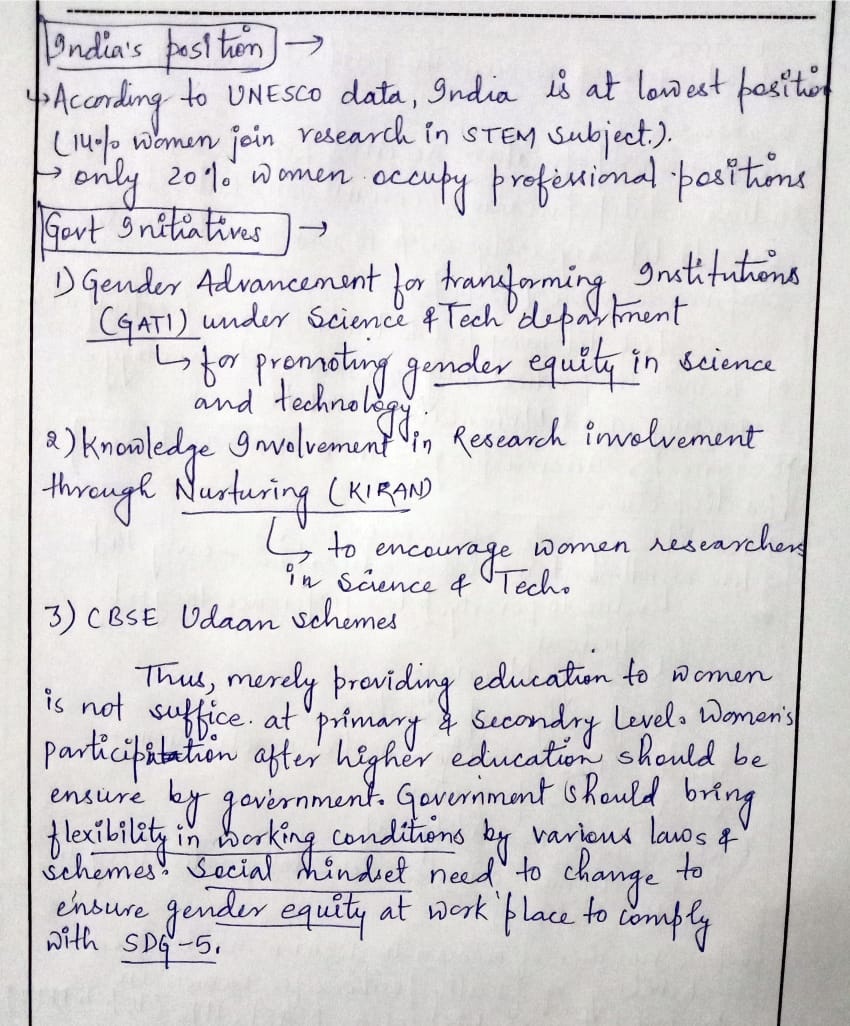 India's position →
↳ According to UNESCO data, India is at lowest position
(14% women join research in STEM subject.).
→ only 20% women occupy professional positions
Govt Initiatives →
1) Gender Advancement for transforming Institutions
(GATI) under Science & Tech department
↳ for promoting gender equity in science
and technology.
2) Knowledge Involvement in Research involvement
through Nurturing (KIRAN)
↳ to encourage women researchers
in Science & Tech.
3) CBSE Udaan schemes
Thus, merely providing education to women
is not suffice. at primary & Secondry Level. Women's
participation after higher education should be
ensure by government. Government should bring
flexibility in working conditions by various laws &
schemes. Social mindset need to change to
ensure gender equity at work place to comply
with SDG-5.